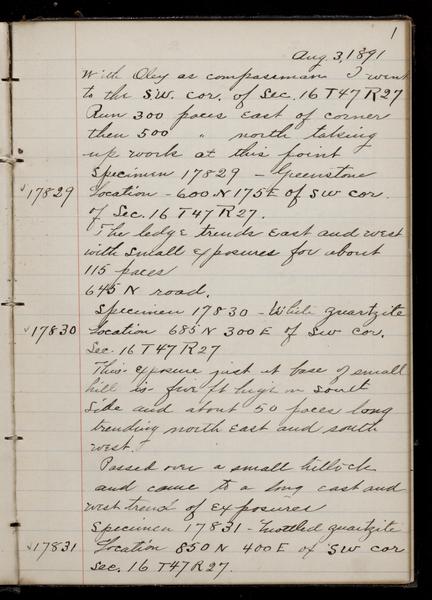 1
Aug. 3, 1891
With Oley as compassman I went
to the S.W. cor. of Sec. 16 T47 R27
Run 300 paces East of corner
then 500 " north taking
up work at this point
Specimen 17829 - Greenstone
√17829 Location - 600 N 175 E of SW cor.
of Sec. 16 T47 R27.
The ledge trends East and west
with small exposures for about
115 paces
645 N road.
Specimen 17830 - White quartzite
√17830 Location 685 N 300 E of SW cor.
Sec. 16 T47 R27
This exposure just at base of small
hill is five ft high on south
side and about 50 paces long
trending north East and south
west.
Passed over a small hillock
and came to a long east and
west trend of Exposures
Specimen 17831 - Mottled quartzite
√17831 Location 850 N 400 E of SW cor
Sec. 16 T47 R27.